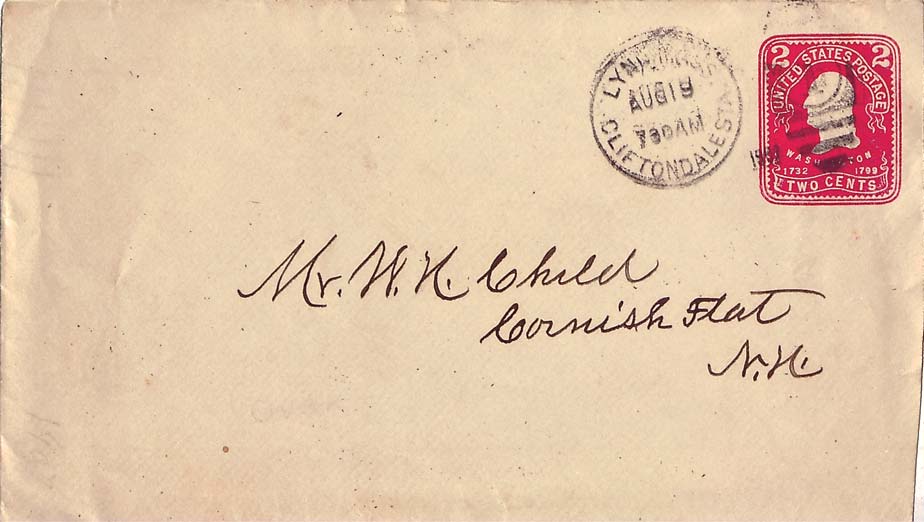 LYNN, MASS.
AUG 19
730 AM
CLIFTONDALE STA.
2 UNITED STATES POSTAGE 2
WASHINGTON
1732 1799
TWO CENTS
Mr. W. H. Child
Cornish Flat
N.H.